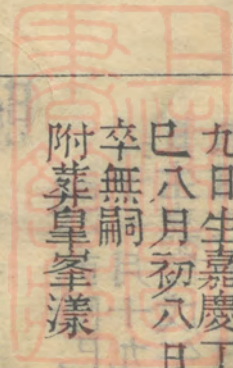 九日生嘉慶丁
巳八月初八日
卒無嗣
附葬皇峯漾